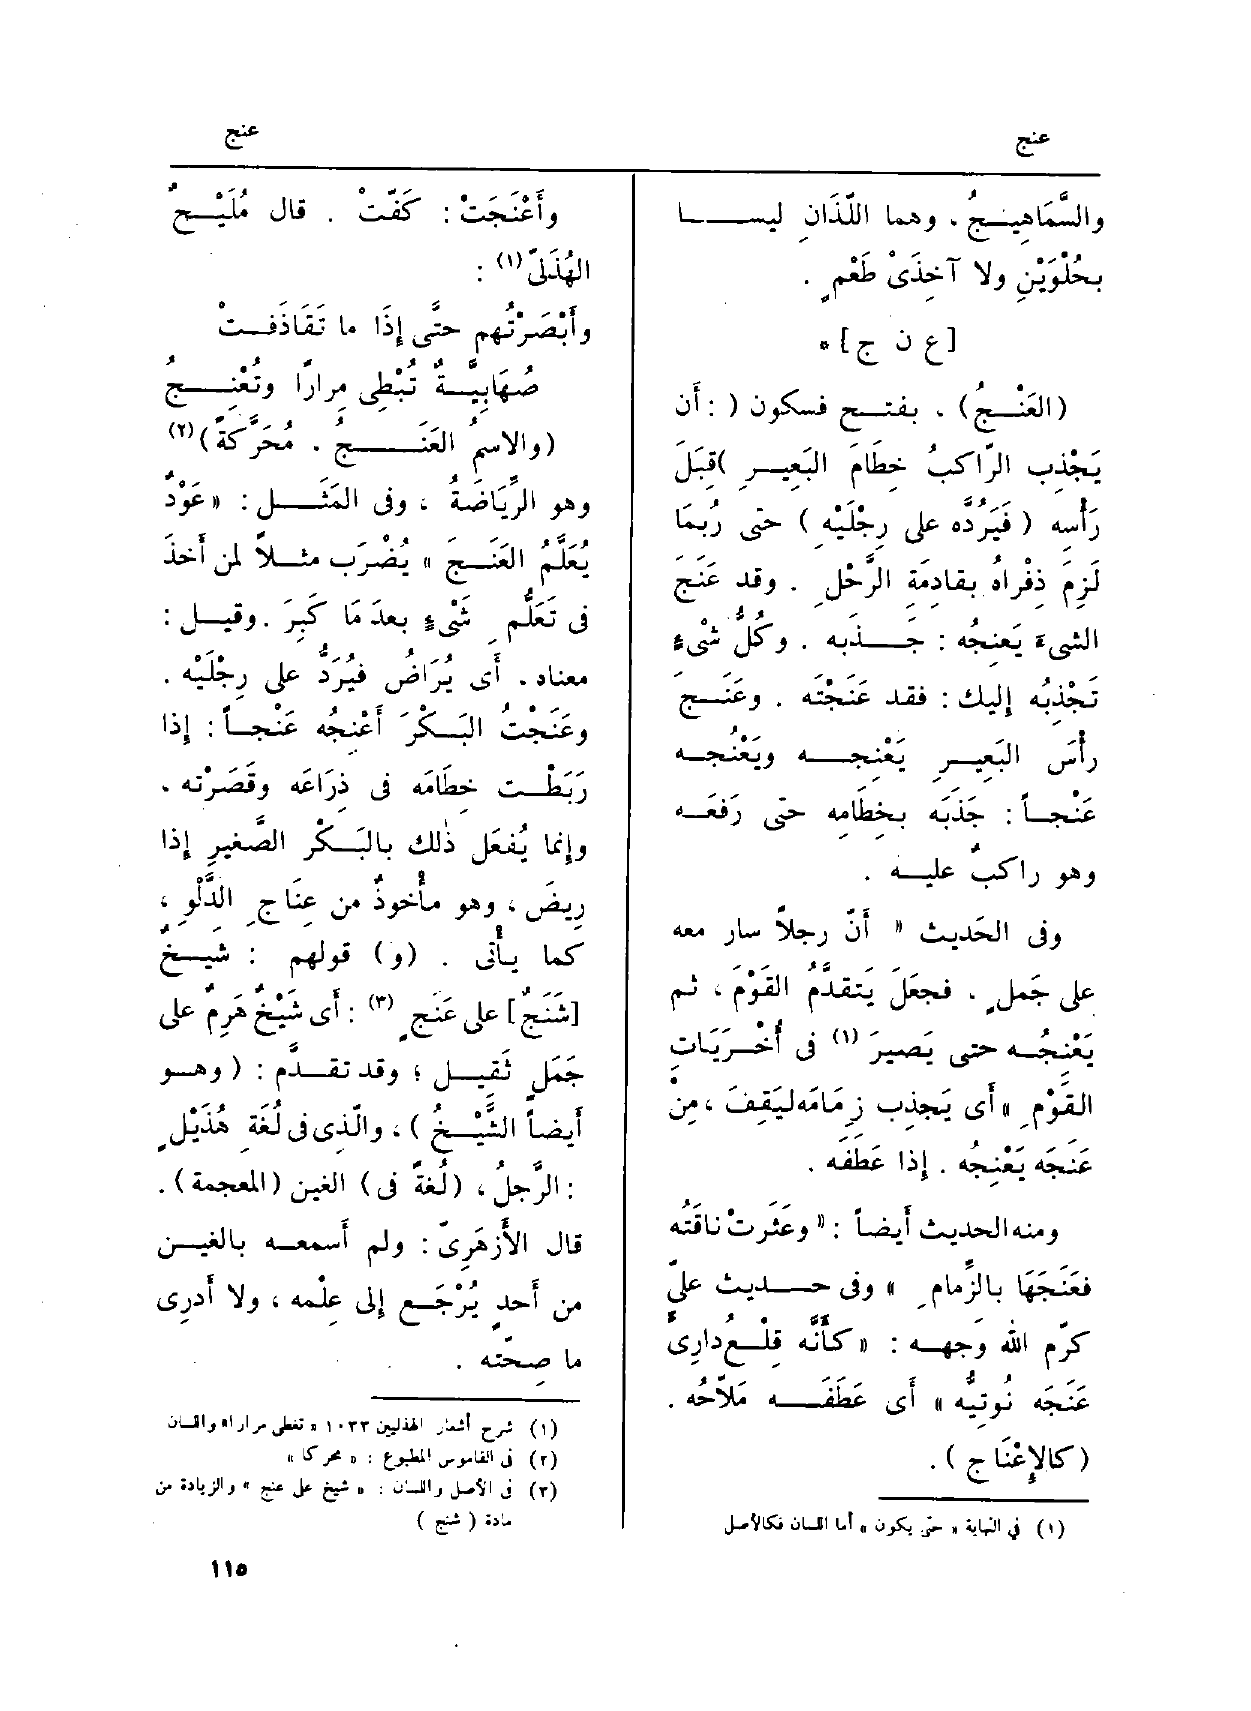 عنج
والسَّمَاهِيجُ، وهما اللَّذَانِ ليسا
بحُلْوَيْنِ ولا آخِذَىْ طَعْمٍ .
[ع ن ج] *
(العَنْجُ) ، بفتح فسكون ( : أن
يَجْذِب الرّاكبُ خِطَامَ البَعِيرِ )قِبَلَ
رَأْسِه ( فَيَرُدَّه على رِجْلَيْهِ ) حتى رُبمَا
لَزِمَ ذِفْرَاهُ بقادِمَةِ الرَّحْلِ . وقد عَنَجَ
الشىءَ يَعنِجُه : جَذَبه . وكُلُّ شْىءٍ
تَجْذِبُه إليك : فقد عَنَجْتَه . وعَنَجَ
رأْسَ البَعِيرِ يَعْنِجه ويَعْنُجه
عَنْجاً : جَذَبَه بخِطَامِه حتى رَفَعَه
وهو راكبٌ عليه .
وفى الحَديث « أَنّ رجلاً سار معه
على جَملٍ ، فجعَلَ يَتقدَّمُ القَوْمَ ، ثم
يَعْنِجُه حتى يَصيرَ (١) فى أُخْرَيَاتِ
القَوْمِ » أى يَجذِب زِمَامَه ليَقِفَ ، مِنْ
عَنَجَه يَعْنِجُه . إذا عَطَفَه .
ومنه الحديث أيضاً : « وعَثَرتْ ناقَتُه
فعَنَجَهَا بالزِّمام » وفى حديث علىّ
كرّم الله وجهه : « كأَنَّه قِلْعُ دارِىٍّ
عَنَجَه نُوتِيُّه » أى عَطَفَه مَلاّحُه .
(كالإِعْنَاج ) .
(١) في النهاية « حتى يكون » أما اللسان فكالأصل
عنج
وأَعْنَجَتْ : كَفَّتْ . قال مُلَيْحٌ
الهُذَلىّ (١) :
وأَبْصَرْتُهم حتَّى إِذَا ما تَقَاذَفتْ
صُهَابِيَّةٌ تُبْطِى مِرارًا وتُعْنِجُ
(والاسمُ العَنَجُ ، مُحَرَّكَةً)(٢)
وهو الرِّيَاضَةُ ، وفى المَثَل : « عَوْدٌ
يُعَلَّمُ العَنَج » يُضْرَب مثلاً لمن أَخذَ
فى تَعَلُّمِ شَىْءٍ بعدَ مَا كَبِرَ . وقيل :
معناه. أى يُرَاضُ فيُرَدُّ على رِجْلَيْه .
وعَنَجْتُ البَكْرَ أَعْنِجُه عَنْجاً : إذا
رَبَطْت خِطَامَه فى ذِرَاعه وقَصَرْته .
وإنما يُفعَل ذٰلك بالبَكْر الصَّغيرِ إذا
رِيضَ ، وهو مأْخوذٌ من عِنَاجِ الدَّلْوِ ،
كما يأْتى . (و) قولهم : شيخٌ
[شَنَجٌ] على عَنَجٍ (٣) : أى شَيْخٌ هَرِمٌ على
جَمَلٍ ثَقيل ؛ وقد تقدَّم : ( وهو
أيضاً الشَّيْخُ ) ، والّذى فى لُغَةِ هُذَيْلٍ
: الرَّجلُ ، (لُغةٌ فى) الغين (المعجمة) .
قال الأَزهَرِىّ : ولم أَسمعه بالغين
من أَحدٍ يُرْجَع إلى عِلْمه ، ولا أَدرِى
ما صِحّته .
(١) شرح أشعار الهذليين ١٠٣٣ « تغطى مرارا» واللسان
(٢) فى القاموس المطبوع : « محركا »
(٣) فى الأصل واللسان : « شيخ على عنج » والزيادة من
مادة ( شنج )
١١٥